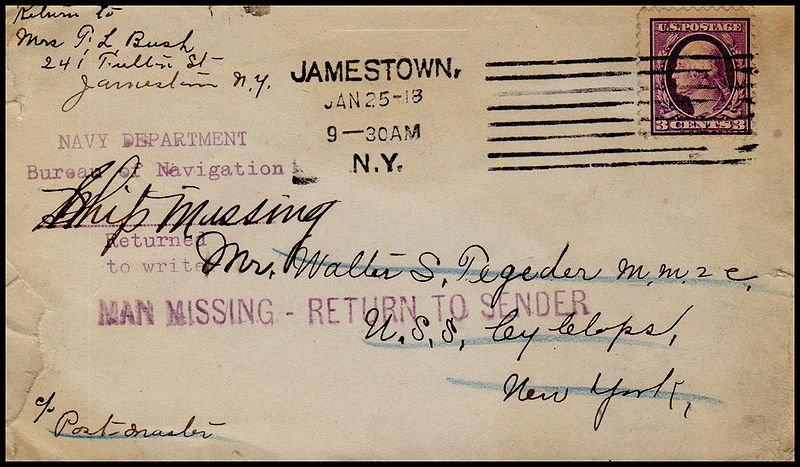 Return to
Mrs T. L. Bush
241 Fulton St
Jamestown N.Y.
JAMESTOWN,
JAN 25-18
9-30AM
N.Y.
U.S. POSTAGE
3 CENTS 3
NAVY DEPARTMENT
Bureau of Navigation
Ship Missing
Returned
to write
Mr. Walter S. Tegeder M.M. 2 c.
MAN MISSING - RETURN TO SENDER
U.S.S. Cyclops,
New York,
c/o
Postmaster